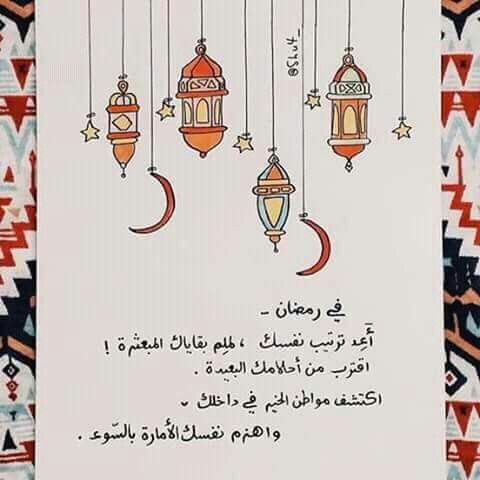 @Shut_
في رمضان -
أَعِد ترتيب نفسك ، لملِم بقاياك المبعثرة !
اقترب من أحلامك البعيدة .
اكتشف مواطن الخير في داخلك
واهزم نفسك الأمارة بالسّوء .